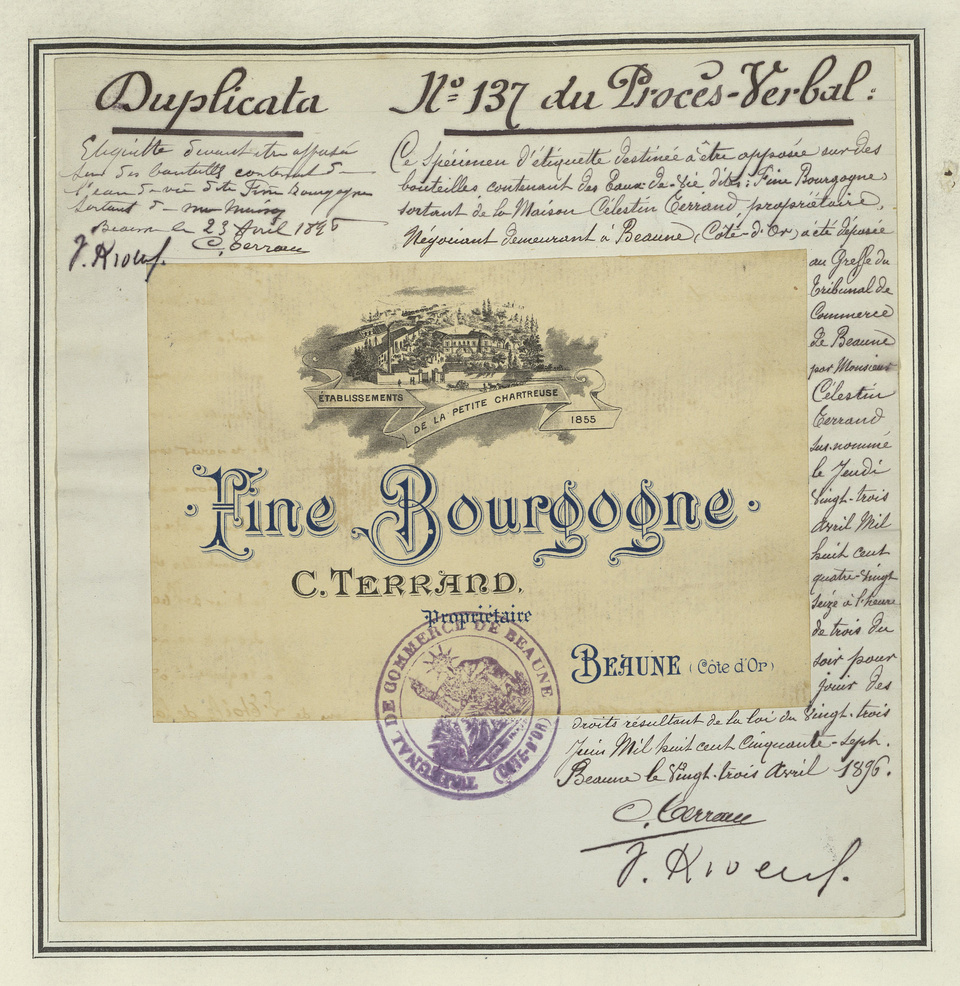 Duplicata
Etiquette devant être apposée
sur des bouteilles contenant de
l'eau-de-vie dite Fine Bourgogne
sortant de
Beaune le 23 Avril 1896
C. Terrand
Nº 137 du Procès-Verbal :
Ce Spécimen d'étiquette destinée à être apposée sur des
bouteilles contenant des Eaux-de-Vie dites : Fine Bourgogne,
sortant de la Maison Célestin Terrand, propriétaire,
Négociant demeurant à Beaune, (Côte-d'Or) a été déposée
au Greffe du
Tribunal de
Commerce
De Beaune
par Monsieur
Célestin
Terrand
sus-nommé
le Jeudi
Vingt-trois
Avril Mil
huit cent
quatre-vingt
seize à l'heure
de trois du
soir pour
jouir des
droits résultant de la loi du Vingt-trois
Juin Mil huit cent Cinquante-sept.
Beaune le Vingt-trois Avril 1896.
C. Terrand
ÉTABLISSEMENTS
DE LA PETITE CHARTREUSE
1855
· Fine Bourgogne ·
C. TERRAND,
Propriétaire
BEAUNE (Côte d'Or)
TRIBUNAL DE COMMERCE DE BEAUNE
(CÔTE-D'OR)